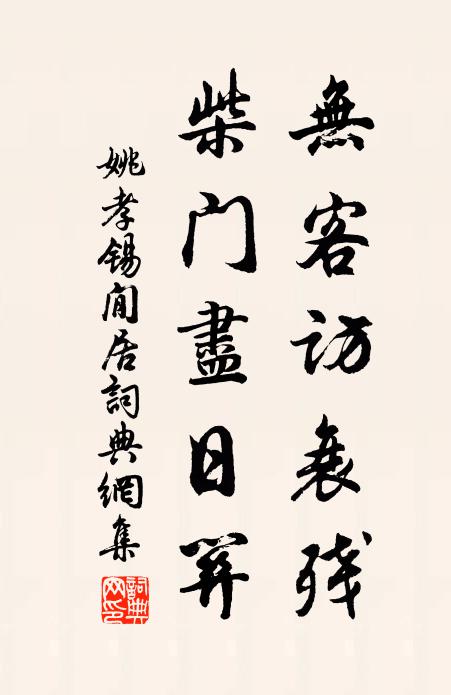 無客訪衰殘
柴门盡日關
姚孝錫閒居詞典網集
詞典网印